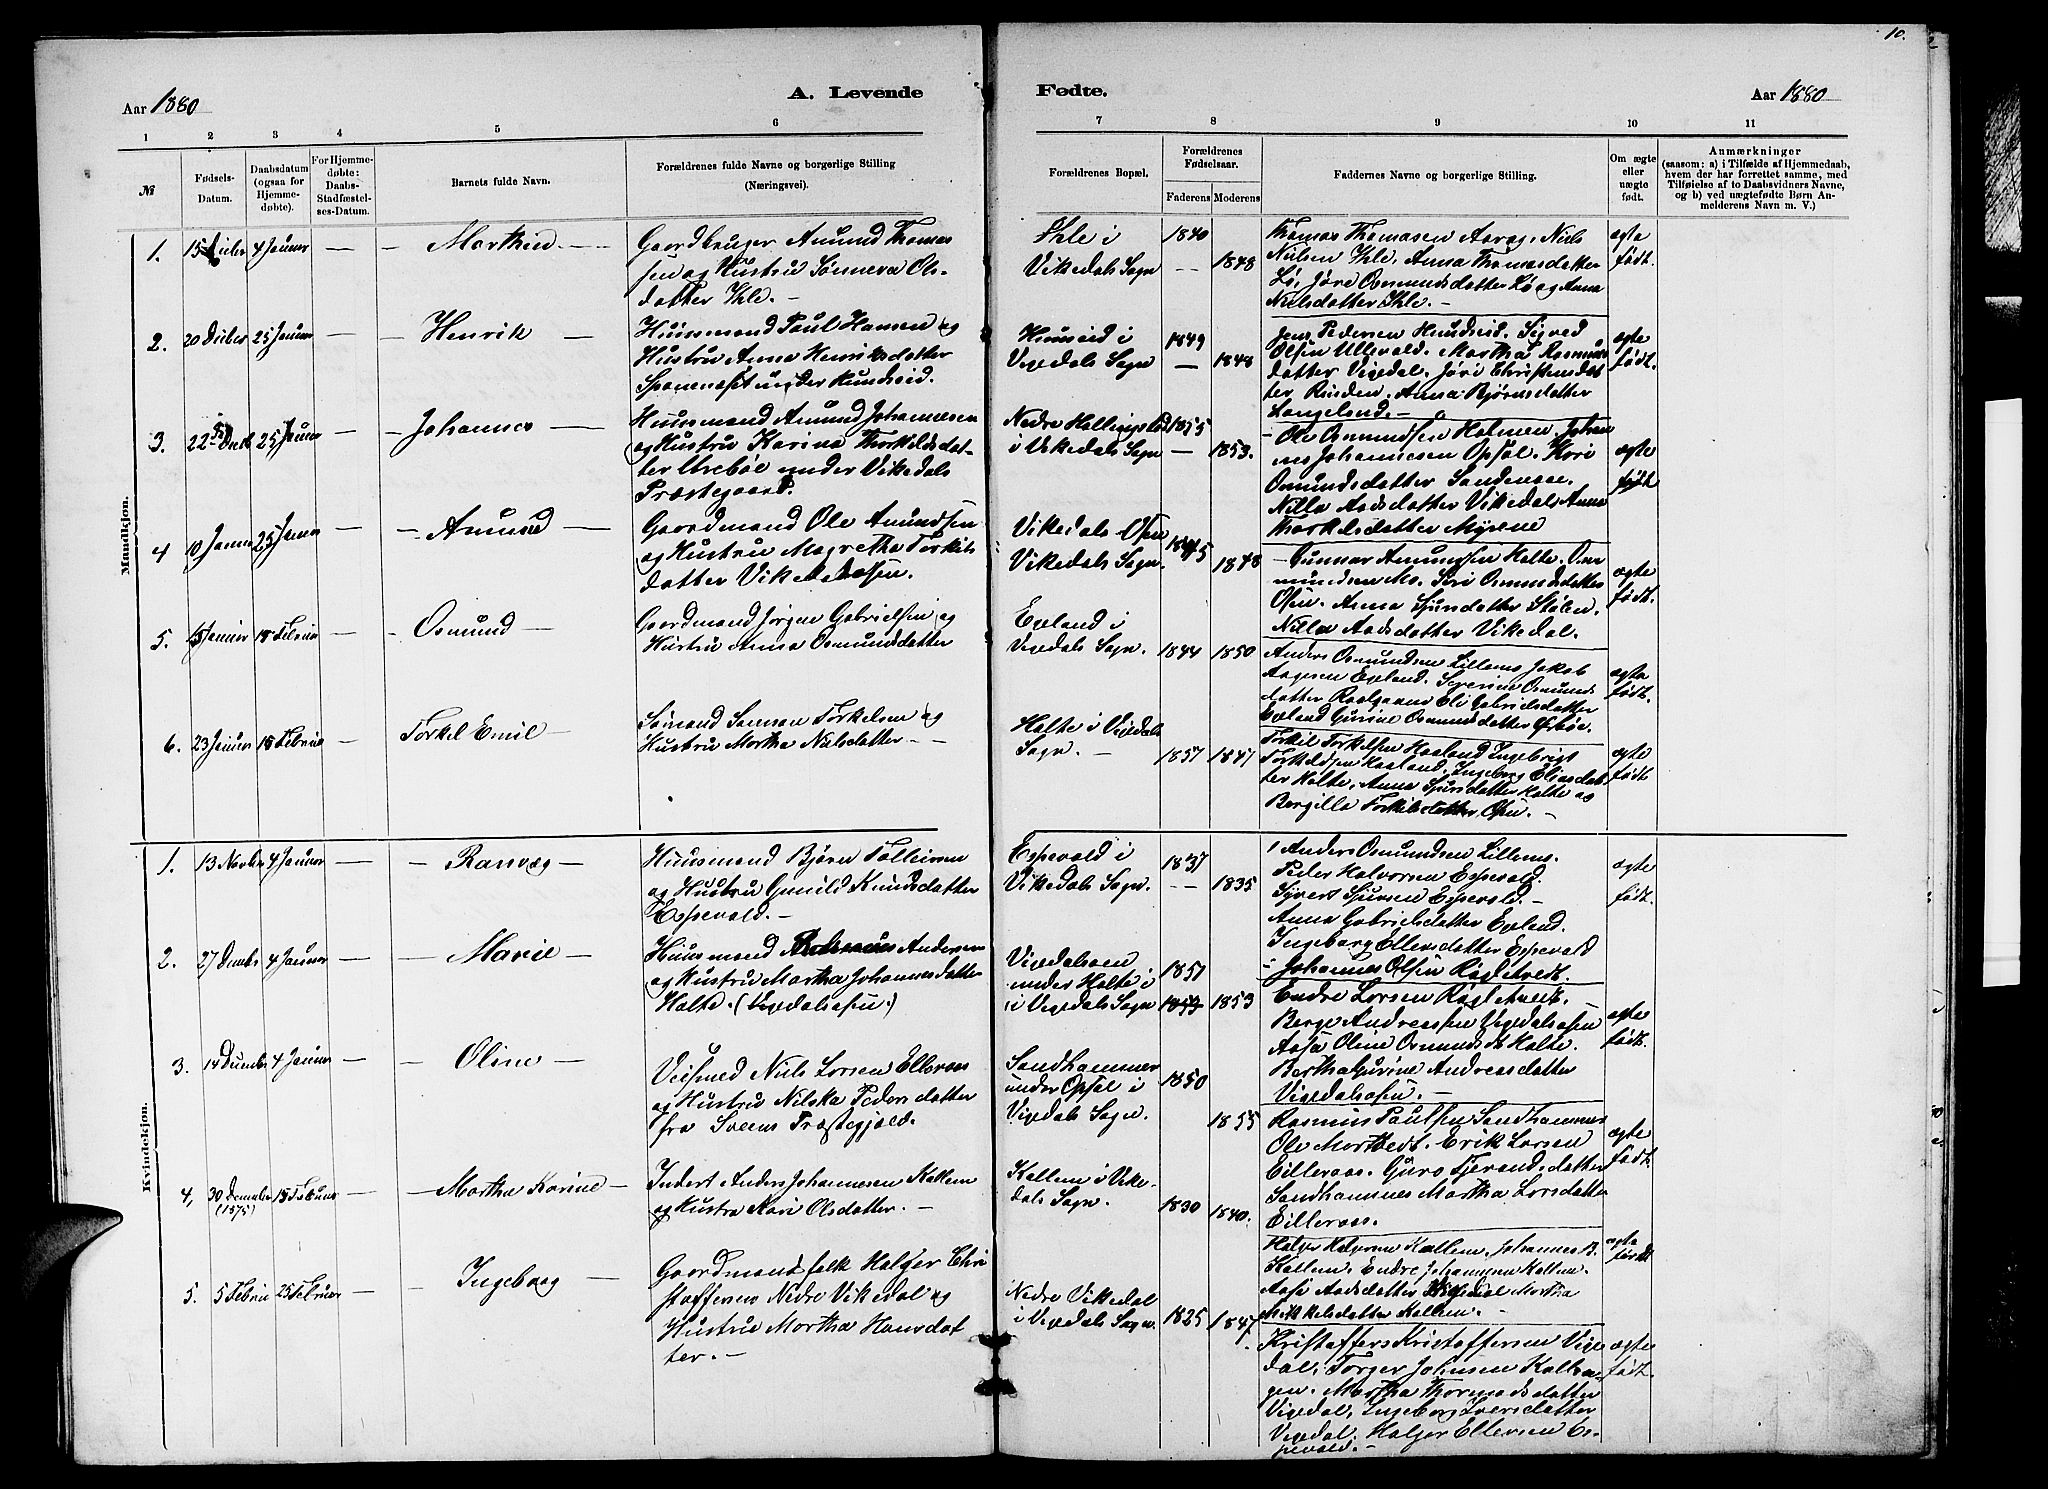 10.
Aar 1880
A. Levende
Fødte.
Aar 1880
1 2 3 4 5 6 7 8 9 10 11
№
Fødsels-
Datum.
Daabsdatum
(ogsaa for
Hjemme-
døbte).
For Hjemme-
døbte:
Daabs-
Stadfæstel-
ses-Datum.
Barnets fulde Navn.
Forældrenes fulde Navne og borgerlige Stilling
(Næringsvei).
Forældrenes Bopæl.
Forældrenes
Fødselsaar.
Faderens Moderens
Faddernes Navne og borgerlige Stilling.
Om ægte
eller
uægte
født.
Anmærkninger
(saasom: a) i Tilfælde af Hjemmedaab,
hvem der har forrettet samme, med
Tilføielse af to Daabsvidners Navne,
og b) ved uægtefødte Børn An-
melderens Navn m. V.)
Mandkjøn.
1. 4 Januar
Gaardbruger Amund Thomas
sen og Hustru Sønneva Ols-
datter Ihle. -
Ihle i
Vikedals Sogn
1840
1848
Thomas Thomasen Aarag, Niels
Nielsen Ihle, Anna Thomasdatter
Lø, Jøre Osmundsdatter Lø og Anna
Nielsdatter Ihle. -
ægte
født.
2. 20 Decber 25 Januar
Henrik
Huusmand Paul Hansen og
Hustru Anna Henriksdatter
i
Vigedals Sogn
1849
1848
Jens Pedersen Hundseid. Sigved
Olsen Ullevold. Martha Rasmus
datter Vigedal. Jøri Christensdat
ter Rinden. Anna Bjørnsdatter
Langeland. -
ægte
født.
3. 25 Januar
Johannes
Huusmand Amund Johannesen
og Hustru Karina Thorkildsdat-
ter Urebøe under Vikedals
Præstegaard.
Nedre
i Vikedals Sogn
1855
1853.
Ole Osmundsen Holmen. Johan
nes Johannesen Opsal. Kari
Osmundsdatter Sandenæs.
Nilla Aadsdatter Vikedal. Anna
Thorkildsdatter Myrene
ægte
født
4 10 Januar 25 Januar
Amund
Gaardmand Ole Amundsen
og Hustru Magretha Torkils
datter Vikedalsosen.
Vikedals Osen
Vikedals Sogn.
1848
Gunnar Amundsen Halte. Os-
mundsen Mo. Siri Osmundsdatter
Osen. Anna Sjursdatter Stølen.
Nilla Aadsdatter Vikedal.
ægte
født.
5. Januar 15 Februar
Osmund
Gaardmand Jørgen Gabrielsen og
Hustru Anna Osmundsdatter
i
Vigedals Sogn.
1844 1850
Anders Osmundsen Lillems Jakob
Aagesen
datter Eli Gabrielsdatter
Gurine Osmundsdatter Ørebøe.
ægte
født.
6. 23 Januar 15 Februar
Torkel Emil
Sømand Samson Torkelsen og
Hustru Martha Nielsdatter
Halte i Vigedals
Sogn. -
1857 1847
Torkil Torkelsen Haaland Ingebrigt
Torkildsen Haaland, Ingeborg Eliasdat
ter Halte, Anna Sjursdatter Halte og
Bergilla Torkilsdatter Osen. -
ægte
født
Kvindekjøn.
1. 13 Novber 4 Januar
Ranveg
Huusmand Bjørn Tolleivsen
og Hustru Gunild Knudsdatter
Espevold. -
Espevold i
Vikedals Sogn.
1837
1835
Anders Osmundsen Lillems.
Peder Halvorsen Espevold.
Sivert Sjursen Espevold. -
Anna Gabrielsdatter
Ingeborg Ellersdatter Espevold
ægte
født.
2. 27 Decmbr 4 Januar
Marie
Huusmand Andersen
og Hustru Martha Johannesdatter
Halte. (Vigedalsosen)
Vigedalsosen
under Halte i
i Vigedals Sogn
1851
1853 1853
Johannes Olsen Røgletvedt.
Endre Larsen Røgletvedt.
Berge Andreassen Vigedalsosen
Aasa Oline Osmundsdt Halte.
Berthe Gurine Andreasdatter
Vigedalsosen. -
ægte
født.
3. 14 Decmber 4 Januar
Oline
Niels Larsen Elleraas
og Hustru Nilska Pedersdatter
fra Sveens Præstegjeld.
Sandhammer
under Opsal i
Vigedals Sogn.
1850
1855
Rasmus Paulsen Sandhammer
Ole Martvedt. Erik Larsen
Eilleraas. Guro Tjerandsdatter
Sandhamnes Martha Larsdatter
Eilleraas.
ægte
født.
4, 30 December 15 Februar
Martha Karine
Inderst Anders Johannesen Kallem
og Hustru Kari Olsdatter. -
Kallem i Vike-
dals Sogn.
1830 1840.
Helge Halvorsen Kallem. Johannes B.
Kallem. Endre Johannesen Kallem.
Aase Aadsdatter Vigedal Martha
Mikkelsdatter Kallem. -
ægte
født
5. 5 Februar 25 Februar
Ingeborg
Gaardmandsfolk Holger Chri
stoffersen Nedre Vikedal og
Hustru Martha Hansdat
ter. -
Nedre Vikedal
i Vigedals Sogn
1825 1847
Kristoffers Kristoffersen Vige
dal, Torger Johnsen Kalha-
gen. Martha Thormodsdatter
Vigedal, Ingeborg Iversdatter
Vigedal. Holger Ellersen Es-
pevold. -
ægte
født.